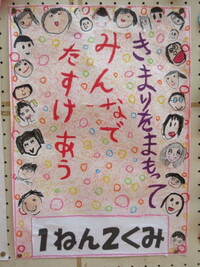 きまりをまもって
みんなで
たすけあう
1ねん2くみ